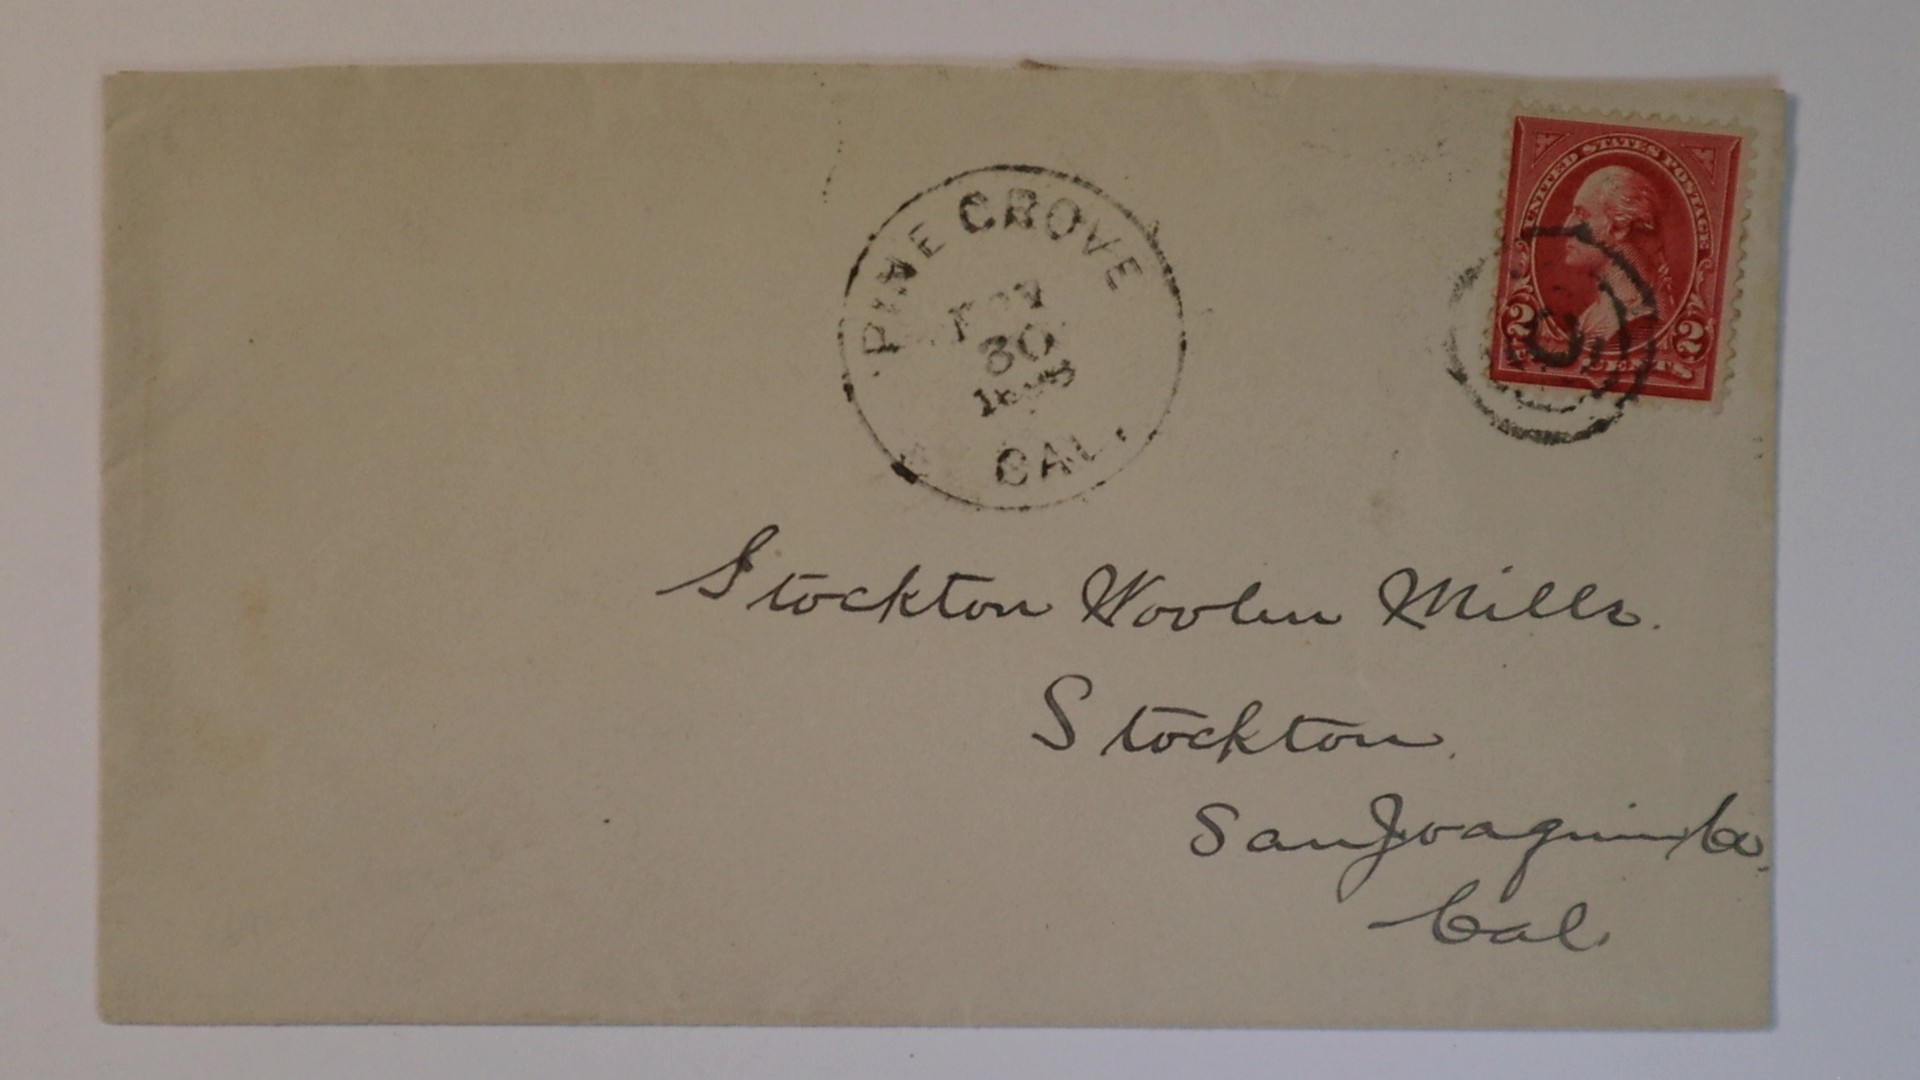 UNITED STATES POSTAGE
2 2
CENTS
PINE GROVE
NOV
30
CAL.
Stockton Woolen Mills.
Stockton.
San Joaquin Co.
Cal.